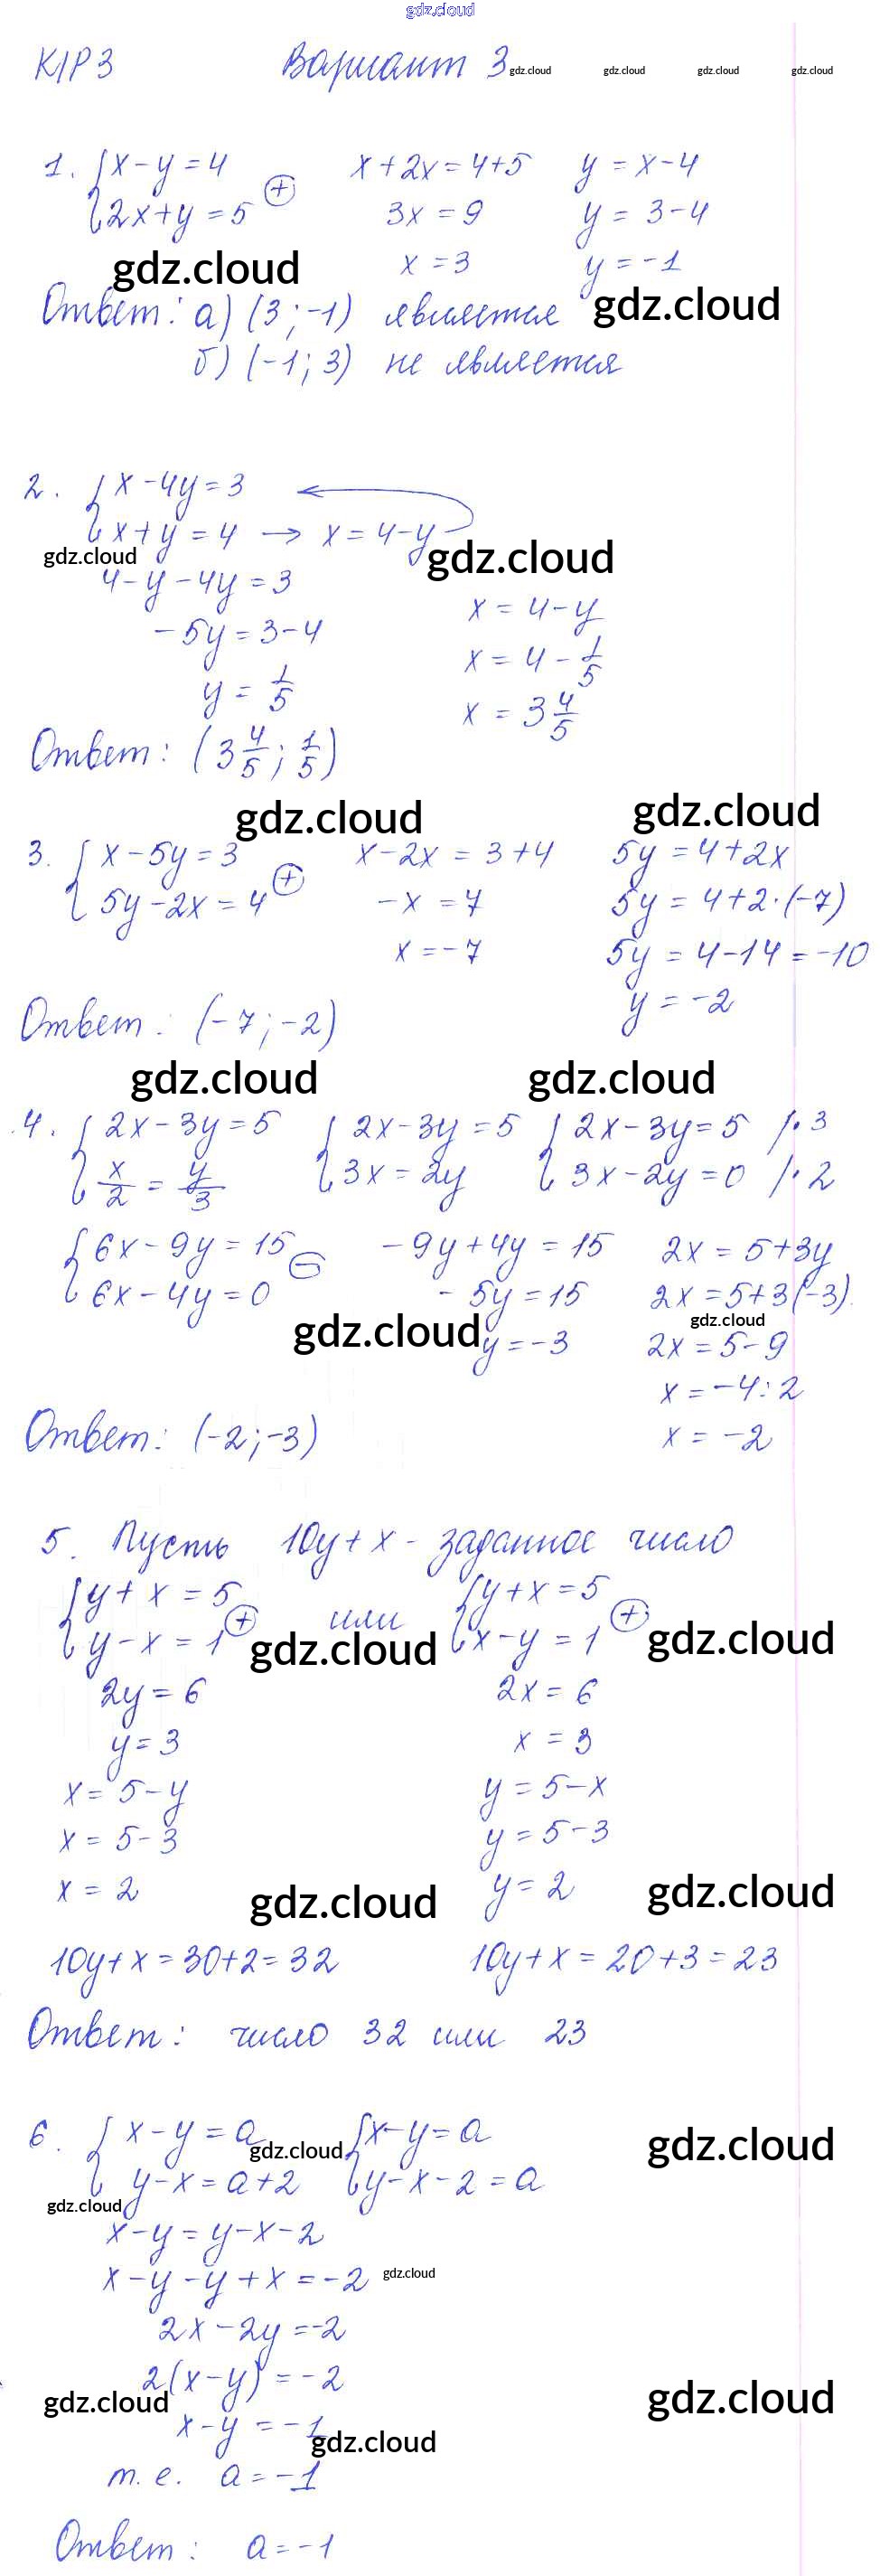 gdz.cloud
К/Р 3 Вариант 3 gdz.cloud gdz.cloud gdz.cloud gdz.cloud
1. { x - y = 4 x + 2x = 4 + 5 y = x - 4
{ 2x + y = 5 ⊕ 3x = 9 y = 3 - 4
gdz.cloud x = 3 y = -1
Ответ: а) (3; -1) является gdz.cloud
б) (-1; 3) не является
2. { x - 4y = 3 ←
{ x + y = 4 → x = 4 - y
gdz.cloud gdz.cloud
4 - y - 4y = 3 x = 4 - y
-5y = 3 - 4 x = 4 - 1/5
y = 1/5 x = 3 4/5
Ответ: (3 4/5; 1/5)
gdz.cloud gdz.cloud
3. { x - 5y = 3 x - 2x = 3 + 4 5y = 4 + 2x
{ 5y - 2x = 4 ⊕ -x = 7 5y = 4 + 2·(-7)
x = -7 5y = 4 - 14 = -10
Ответ: (-7; -2) y = -2
gdz.cloud gdz.cloud
4. { 2x - 3y = 5 { 2x - 3y = 5 { 2x - 3y = 5 /·3
{ x/2 = y/3 { 3x = 2y { 3x - 2y = 0 /·2
{ 6x - 9y = 15 ⊖ -9y + 4y = 15 2x = 5 + 3y
{ 6x - 4y = 0 -5y = 15 2x = 5 + 3(-3)
gdz.cloud gdz.cloud
y = -3 2x = 5 - 9
x = -4 : 2
Ответ: (-2; -3) x = -2
5. Пусть 10y + x - заданное число
{ y + x = 5 или { y + x = 5
{ y - x = 1 ⊕ gdz.cloud { x - y = 1 ⊕ gdz.cloud
2y = 6 2x = 6
y = 3 x = 3
x = 5 - y y = 5 - x
x = 5 - 3 y = 5 - 3
x = 2 gdz.cloud y = 2 gdz.cloud
10y + x = 30 + 2 = 32 10y + x = 20 + 3 = 23
Ответ: число 32 или 23
6. { x - y = a gdz.cloud { x - y = a gdz.cloud
{ y - x = a + 2 { y - x - 2 = a
gdz.cloud
x - y = y - x - 2
x - y - y + x = -2 gdz.cloud
2x - 2y = -2
2(x - y) = -2
gdz.cloud gdz.cloud
x - y = -1
gdz.cloud
т. е. a = -1
Ответ: a = -1